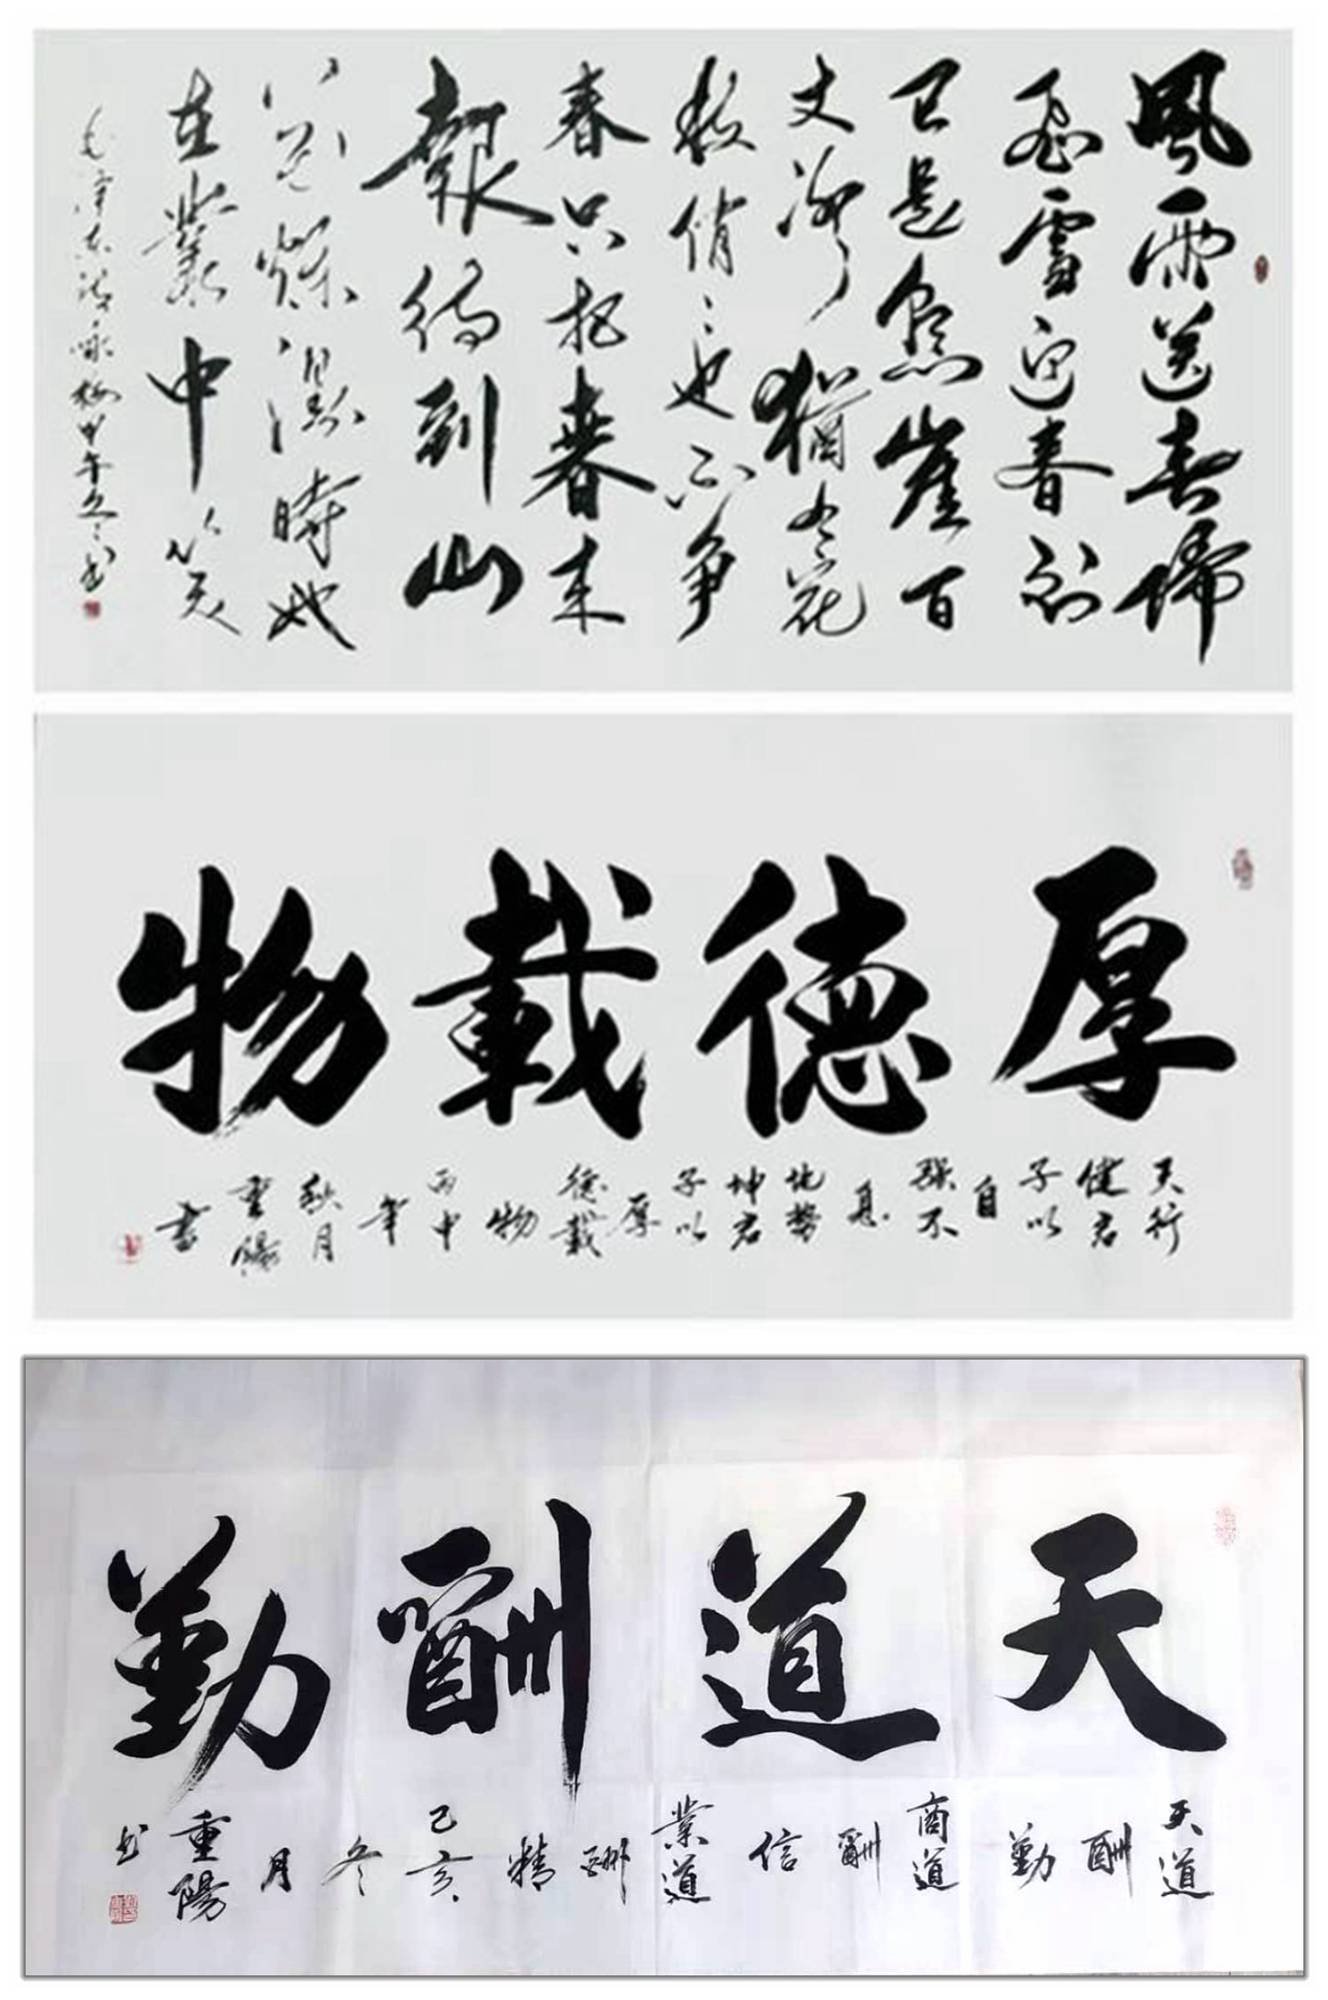 風雨送春歸
飛雪迎春到
已是懸崖百
丈冰猶有花
枝俏〻也不爭
春只把春來
報待到山
花爛漫時她
在叢中笑
毛澤東詩詠梅甲午冬〻書
厚德載物
天行
健君
子以
自
強不
息
地勢
坤君
子以
厚
德載
物
丙申
年
秋月
重陽
書
天道酬勤
天道
酬
勤
商道
酬
信
業道
酬
精
己亥
冬
月
重陽
书